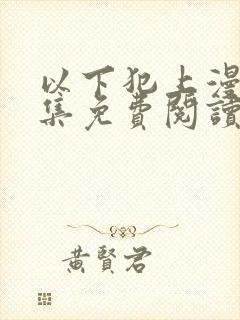 以下犯上漫
集免費閱讀
黃賢君